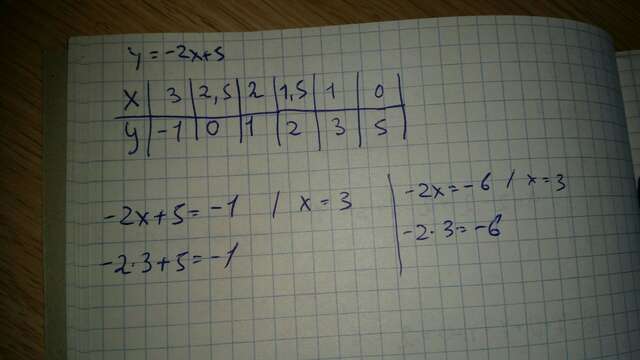 y = -2x+5
x | 3 | 2,5 | 2 | 1,5 | 1 | 0
y | -1 | 0 | 1 | 2 | 3 | 5
-2x+5 = -1 / x = 3
-2·3+5 = -1
-2x = -6 / x = 3
-2·3 = -6